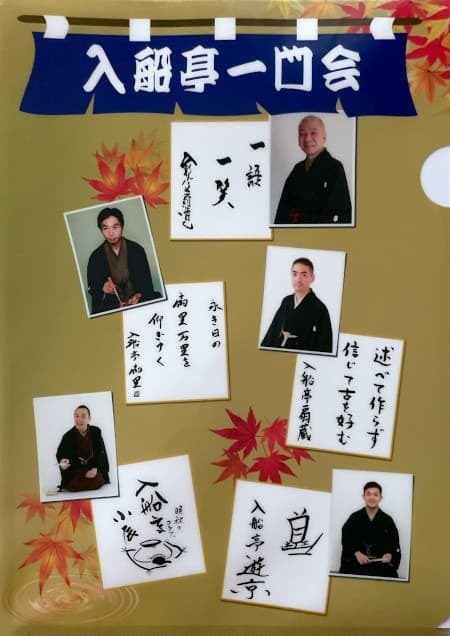 入船亭一門会
一語
一笑
永き日の
扇里万里を
仰ぎゆく
入船亭扇里
述べて作らず
信じて古を好む
入船亭扇蔵
入船亭
小辰
入船亭遊京